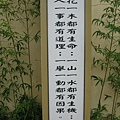 一花一木都有生命；一山一水都有生機；
一人一事都有道理；一舉一動都有因果。